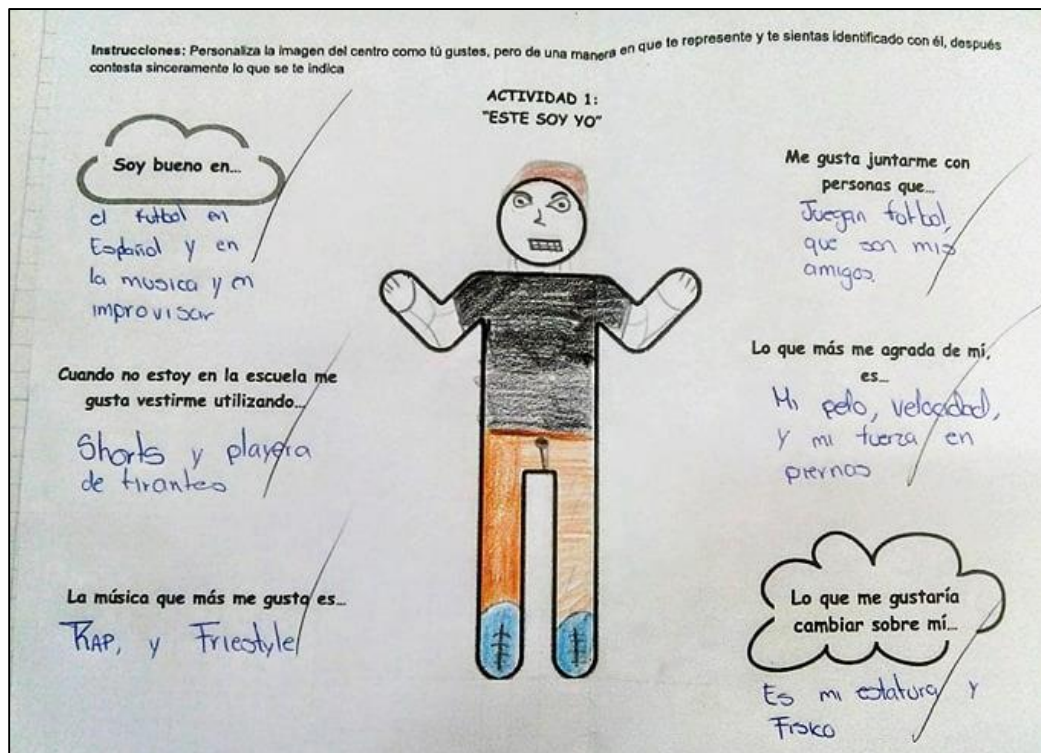 Instrucciones: Personaliza la imagen del centro como tú gustes, pero de una manera en que te represente y te sientas identificado con él, después
contesta sinceramente lo que se te indica
ACTIVIDAD 1:
"ESTE SOY YO"
Soy bueno en...
el futbol en
Español y en
la musica y en
improvisar
Cuando no estoy en la escuela me
gusta vestirme utilizando...
Shorts y playera
de tirantes
La música que más me gusta es...
RAP, y Friestyle
Me gusta juntarme con
personas que...
Juegan futbol,
que son mis
amigos.
Lo que más me agrada de mí,
es...
Mi pelo, velocidad,
y mi fuerza en
piernas
Lo que me gustaría
cambiar sobre mí...
Es mi estatura y
Fisico